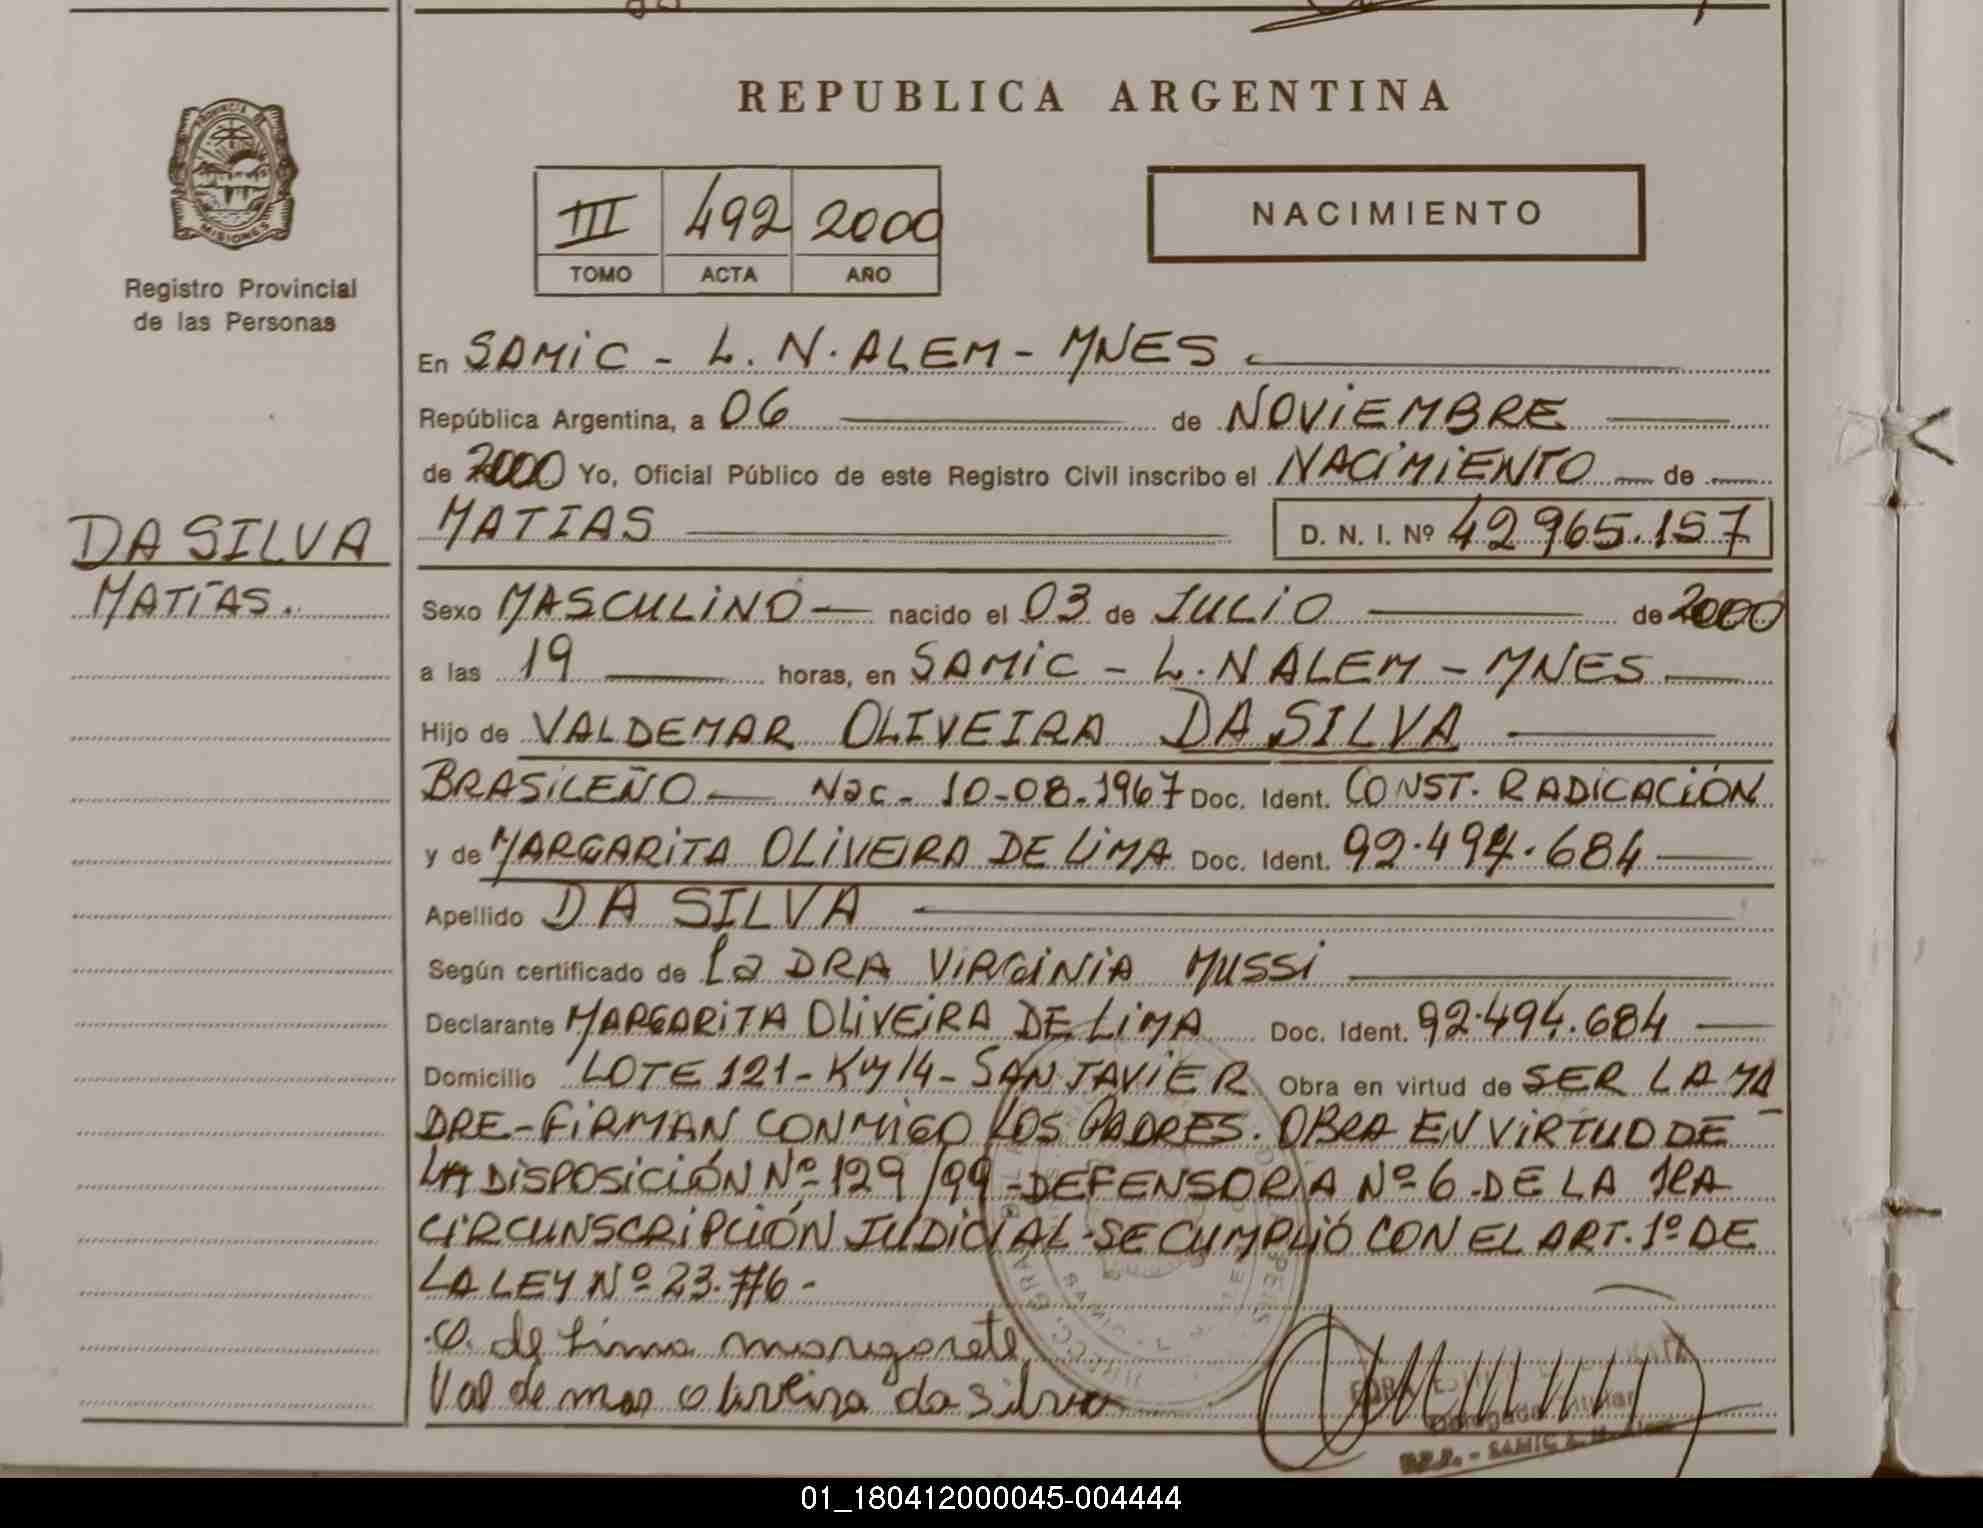 REPUBLICA ARGENTINA
PROVINCIA DE
MISIONES
Registro Provincial
de las Personas
III 492 2000
TOMO ACTA AÑO
NACIMIENTO
En SAMIC - L. N. ALEM - MNES
República Argentina, a 06 de NOVIEMBRE
de 2000 Yo, Oficial Público de este Registro Civil inscribo el NACIMIENTO de
DA SILVA
MATÍAS.
MATIAS D. N. I. Nº 42965.157
Sexo MASCULINO nacido el 03 de JULIO de 2000
a las 19 horas, en SAMIC - L. N ALEM - MNES
Hijo de VALDEMAR OLIVEIRA DA SILVA
BRASILEÑO - Nac - 10-08.1967 Doc. Ident. CONST. RADICACIÓN
y de MARGARITA OLIVEIRA DE LIMA Doc. Ident. 92.494.684
Apellido DA SILVA
Según certificado de La DRA VIRGINIA MUSSI
Declarante MARGARITA OLIVEIRA DE LIMA Doc. Ident. 92.494.684
Domicilio LOTE 121 - KM 14 - SAN JAVIER Obra en virtud de SER LA MA
DRE - FIRMAN CONMIGO LOS PADRES. OBRA EN VIRTUD DE
LA DISPOSICIÓN Nº 129/99 - DEFENSORIA Nº 6 - DE LA 1RA
CIRCUNSCRIPCIÓN JUDICIAL - SE CUMPLIÓ CON EL ART. 1º DE
LA LEY Nº 23.776 -
O. de Lima margarete
Valdemar oliveira da silva
Delegada Titular
R.P.P. - SAMIC L. N. Alem
01_180412000045-004444